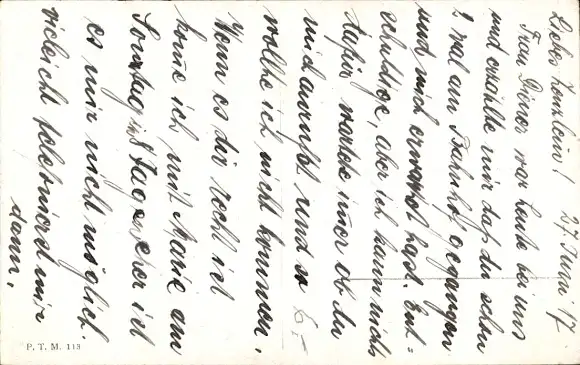 Liebes Hanslein! 27 Juni 17.
Frau Binor war heute bei uns
und erzählte mir daß du schon
2 mal am Bahnhof gegangen
und mich erwartet hast. Ent-
schuldige, aber ich kann nichts
dafür wartete immer ob du
mich anrufst und so
wollte ich nicht kommen.
Wenn es dir recht ist
kome ich mit Marie am
Sonntag in 8 Tagen eher ist
es mir nicht möglich.
vieleicht telefonierst mir
dann.
P. T. M. 113